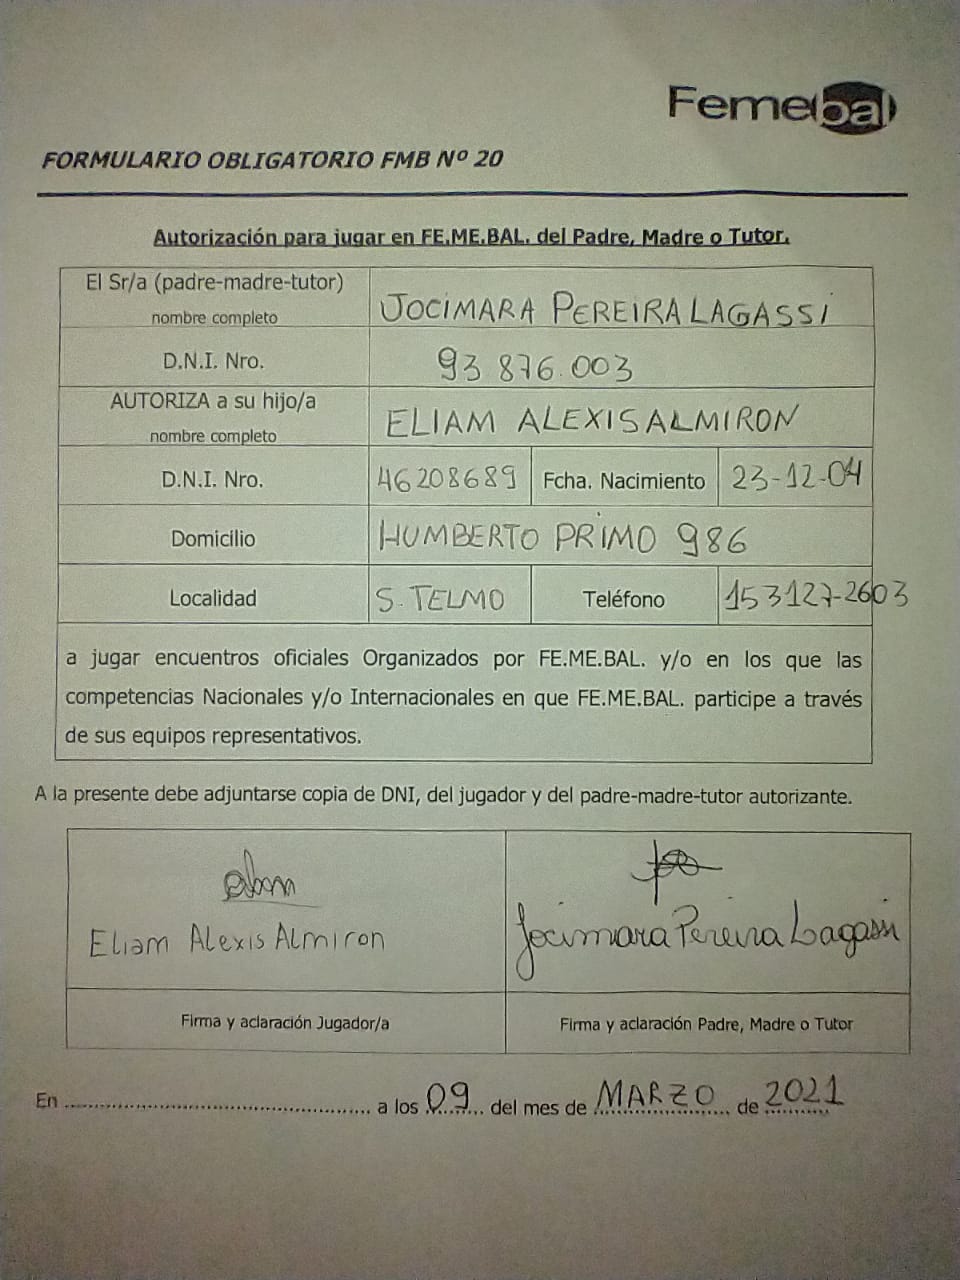 Femebal
FORMULARIO OBLIGATORIO FMB Nº 20
Autorización para jugar en FE.ME.BAL. del Padre, Madre o Tutor.
El Sr/a (padre-madre-tutor)
nombre completo
JOCIMARA PEREIRA LAGASSI
D.N.I. Nro.
93 876.003
AUTORIZA a su hijo/a
nombre completo
ELIAM ALEXIS ALMIRON
D.N.I. Nro.
46208689
Fcha. Nacimiento
23-12-04
Domicilio
HUMBERTO PRIMO 986
Localidad
S. TELMO
Teléfono
153127-2603
a jugar encuentros oficiales Organizados por FE.ME.BAL. y/o en los que las
competencias Nacionales y/o Internacionales en que FE.ME.BAL. participe a través
de sus equipos representativos.
A la presente debe adjuntarse copia de DNI, del jugador y del padre-madre-tutor autorizante.
Eliam Alexis Almiron
Jocimara Pereira Lagassi
Firma y aclaración Jugador/a
Firma y aclaración Padre, Madre o Tutor
En .................................................... a los 09 del mes de MARZO de 2021